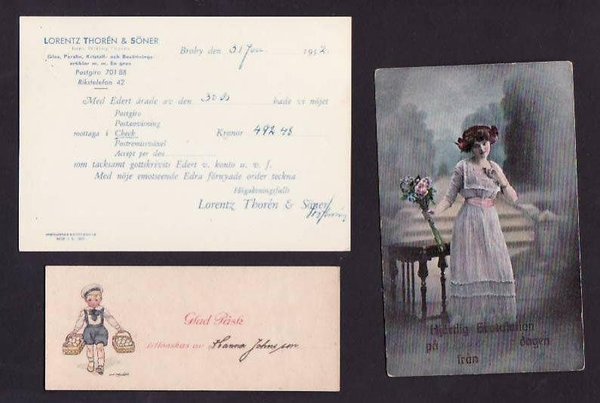 LORENTZ THORÉN & SÖNER
Glas, Porslin, Kristall- och Bosättnings-
artiklar m. m. En gros
Postgiro 701 88
Rikstelefon 42
Broby den 31 Jan. 1952
Med Edert ärade av den 30 ds hade vi nöjet
Postgiro
Postanvisning
mottaga i Check Kronor 492 48
Postremissväxel
Accept per den
som tacksamt gottskrivits Edert v. konto u. v. f.
Med nöje emotseende Edra förnyade order teckna
Högaktningsfullt
Lorentz Thorén & Söner
Glad Påsk
tillönskas av Hanna Johnsson
Hjärtlig Gratulation
på dagen
från